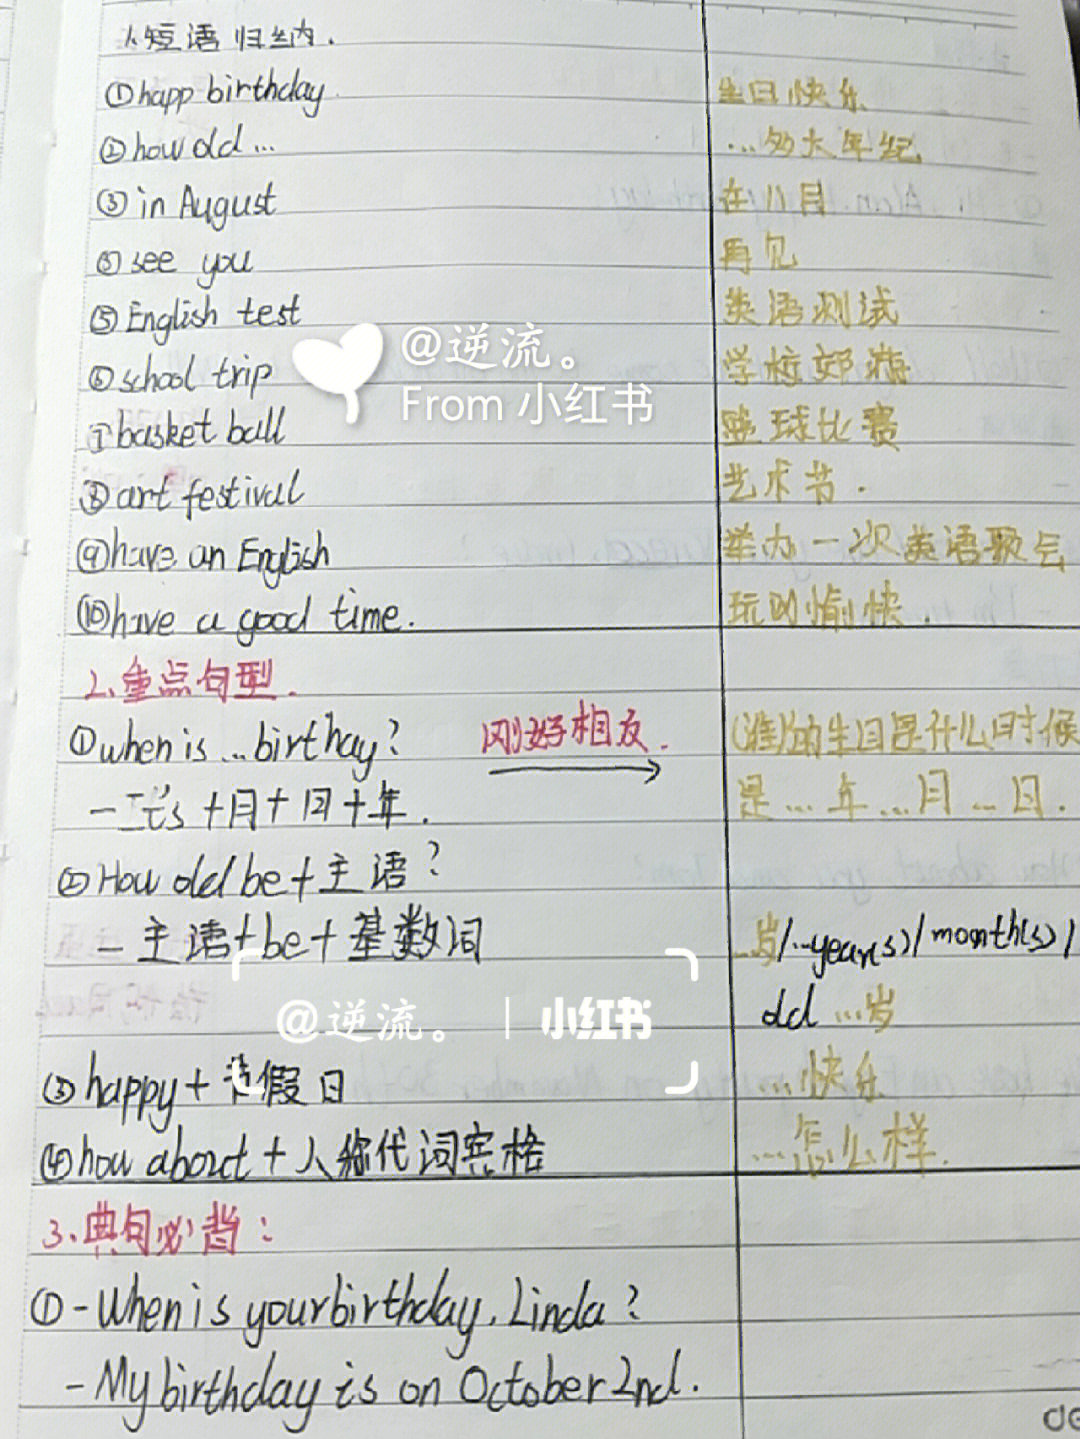 1、短语归纳.
①happ birthday. 生日快乐
②how old... ...多大年纪
③in August 在八月
④see you 再见
⑤English test 英语测试
⑥school trip 学校郊游
⑦basket ball 篮球比赛
⑧art festival 艺术节.
⑨have an English 举办一次英语歌会
⑩have a good time. 玩的愉快.
2、重点句型.
①when is ...birthay? 刚好相反. (谁)的生日是什么时候
-It's +月+日+年. 是...年...月...日.
②How old be+主语?
-主语+be+基数词 ...岁/...year(s)/month(s)/
old ...岁
③happy+节假日 ...快乐
④how about+人称代词宾格 ...怎么样.
3、典句必背:
①-When is your birthday, Linda?
-My birthday is on October 2nd.
@逆流。
From 小红书
@逆流。 | 小红书
de